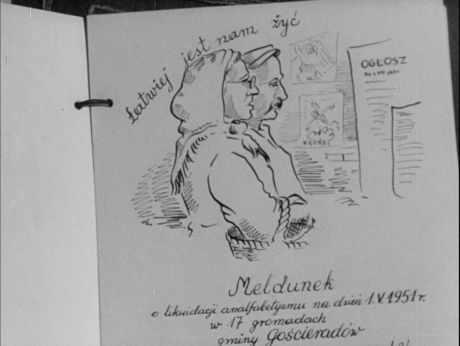 Łatwiej jest nam żyć
OGŁOSZ
Meldunek
o likwidacji analfabetyzmu na dzień 1.V.1951 r.
w 17 gromadach
gminy Gościeradów